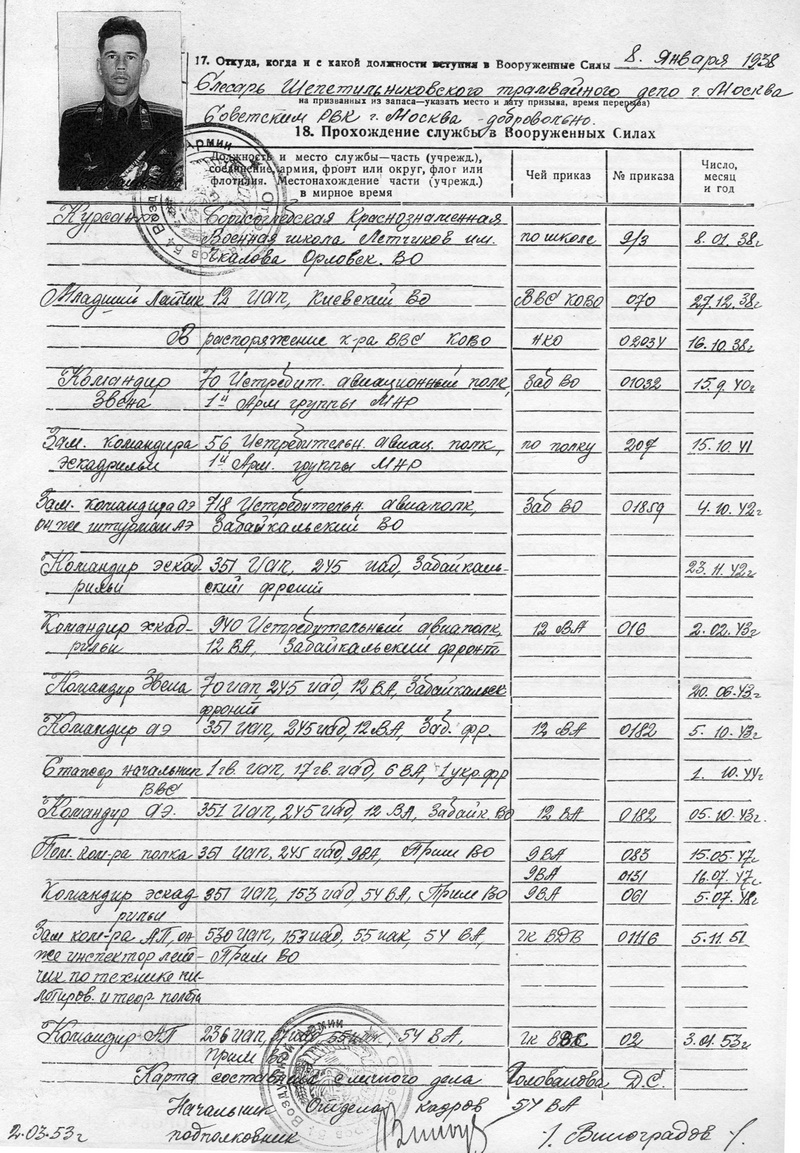 17. Откуда, когда и с какой должности вступил в Вооруженные Силы 8. Января 1938
Слесарь Шепетильниковского трамвайного депо г. Москва
на призванных из запаса—указать место и дату призыва, время перерыва)
Советским РВК г. Москва - добровольно.
18. Прохождение службы в Вооруженных Силах
Должность и место службы—часть (учрежд.), соединение, армия, фронт или округ, флот или флотилия. Местонахождение части (учрежд.) в мирное время Чей приказ № приказа Число, месяц и год
Курсант Борисоглебская Краснознаменная
Военная школа Летчиков им. по школе 9/3 8.01.38г
Чкалова Орловск. ВО
Младший Летчик 12 иап, Киевский Во ВВС КОВО 070 27.12.38г
В распоряжение к-ра ВВС КОВО НКО 02034 16.10.38г
Командир 70 Истребит. авиационный полк, Заб ВО 01032 15.9.40г
Звена 1й Арм группы МНР
Зам. командира 56 Истребительн. авиац. полк, по полку 207 15.10.41
эскадрильи 1й Арм. группы МНР
Зам. командира аэ 718 Истребительн. авиаполк, Заб ВО 01859 4.10.42г
он же штурман АЭ Забайкальский ВО
Командир эскад- 351 ИАП, 245 иад, Забайкаль- 23.11.42г
рильи ский фронт
Командир эскад- 940 Истребительный авиаполк, 12 ВА 016 2.02.43г
рильи 12 ВА, Забайкальский фронт
Командир Звена 70 иап, 245 иад, 12 ВА, Забайкальск 20.06.43г
фронт
Командир аэ 351 иап, 245 иад, 12 ВА, Заб. фр. 12 ВА 0182 5.10.43г
Стажер начальник 1 гв. иап, 17 гв. иад, 6 ВА, 1 укр. фр 1. 10.44г
ВВС
Командир аэ. 351 иап, 245 иад, 12 ВА, Забайк ВО 12 ВА 0182 05.10.43г.
Пом. ком-ра полка 351 иап, 245 иад, 9ВА, Прим ВО 9ВА 083 15.05.47г
9ВА 0131 16.07.47г
Командир эскад- 351 иап, 153 иад, 54 ВА, Прим ВО 9ВА 061 5.07.48г
рильи
Зам ком-ра АП, он 530 иап, 153 иад, 55 иак, 54 ВА, гк ВДВ 01116 5.11.51
же инспектор лет- Прим ВО
чик по технике пи-
лотиров. и теор. полета
Командир АП 236 иап, иад, 54 ВА, гк ВВС 02 3.01.53г
прим во
Карта составлена с личного дела Голованова Д.С.
Начальник Отдела кадров 54 ВА
2.03.53г подполковник /. Виноградов /.